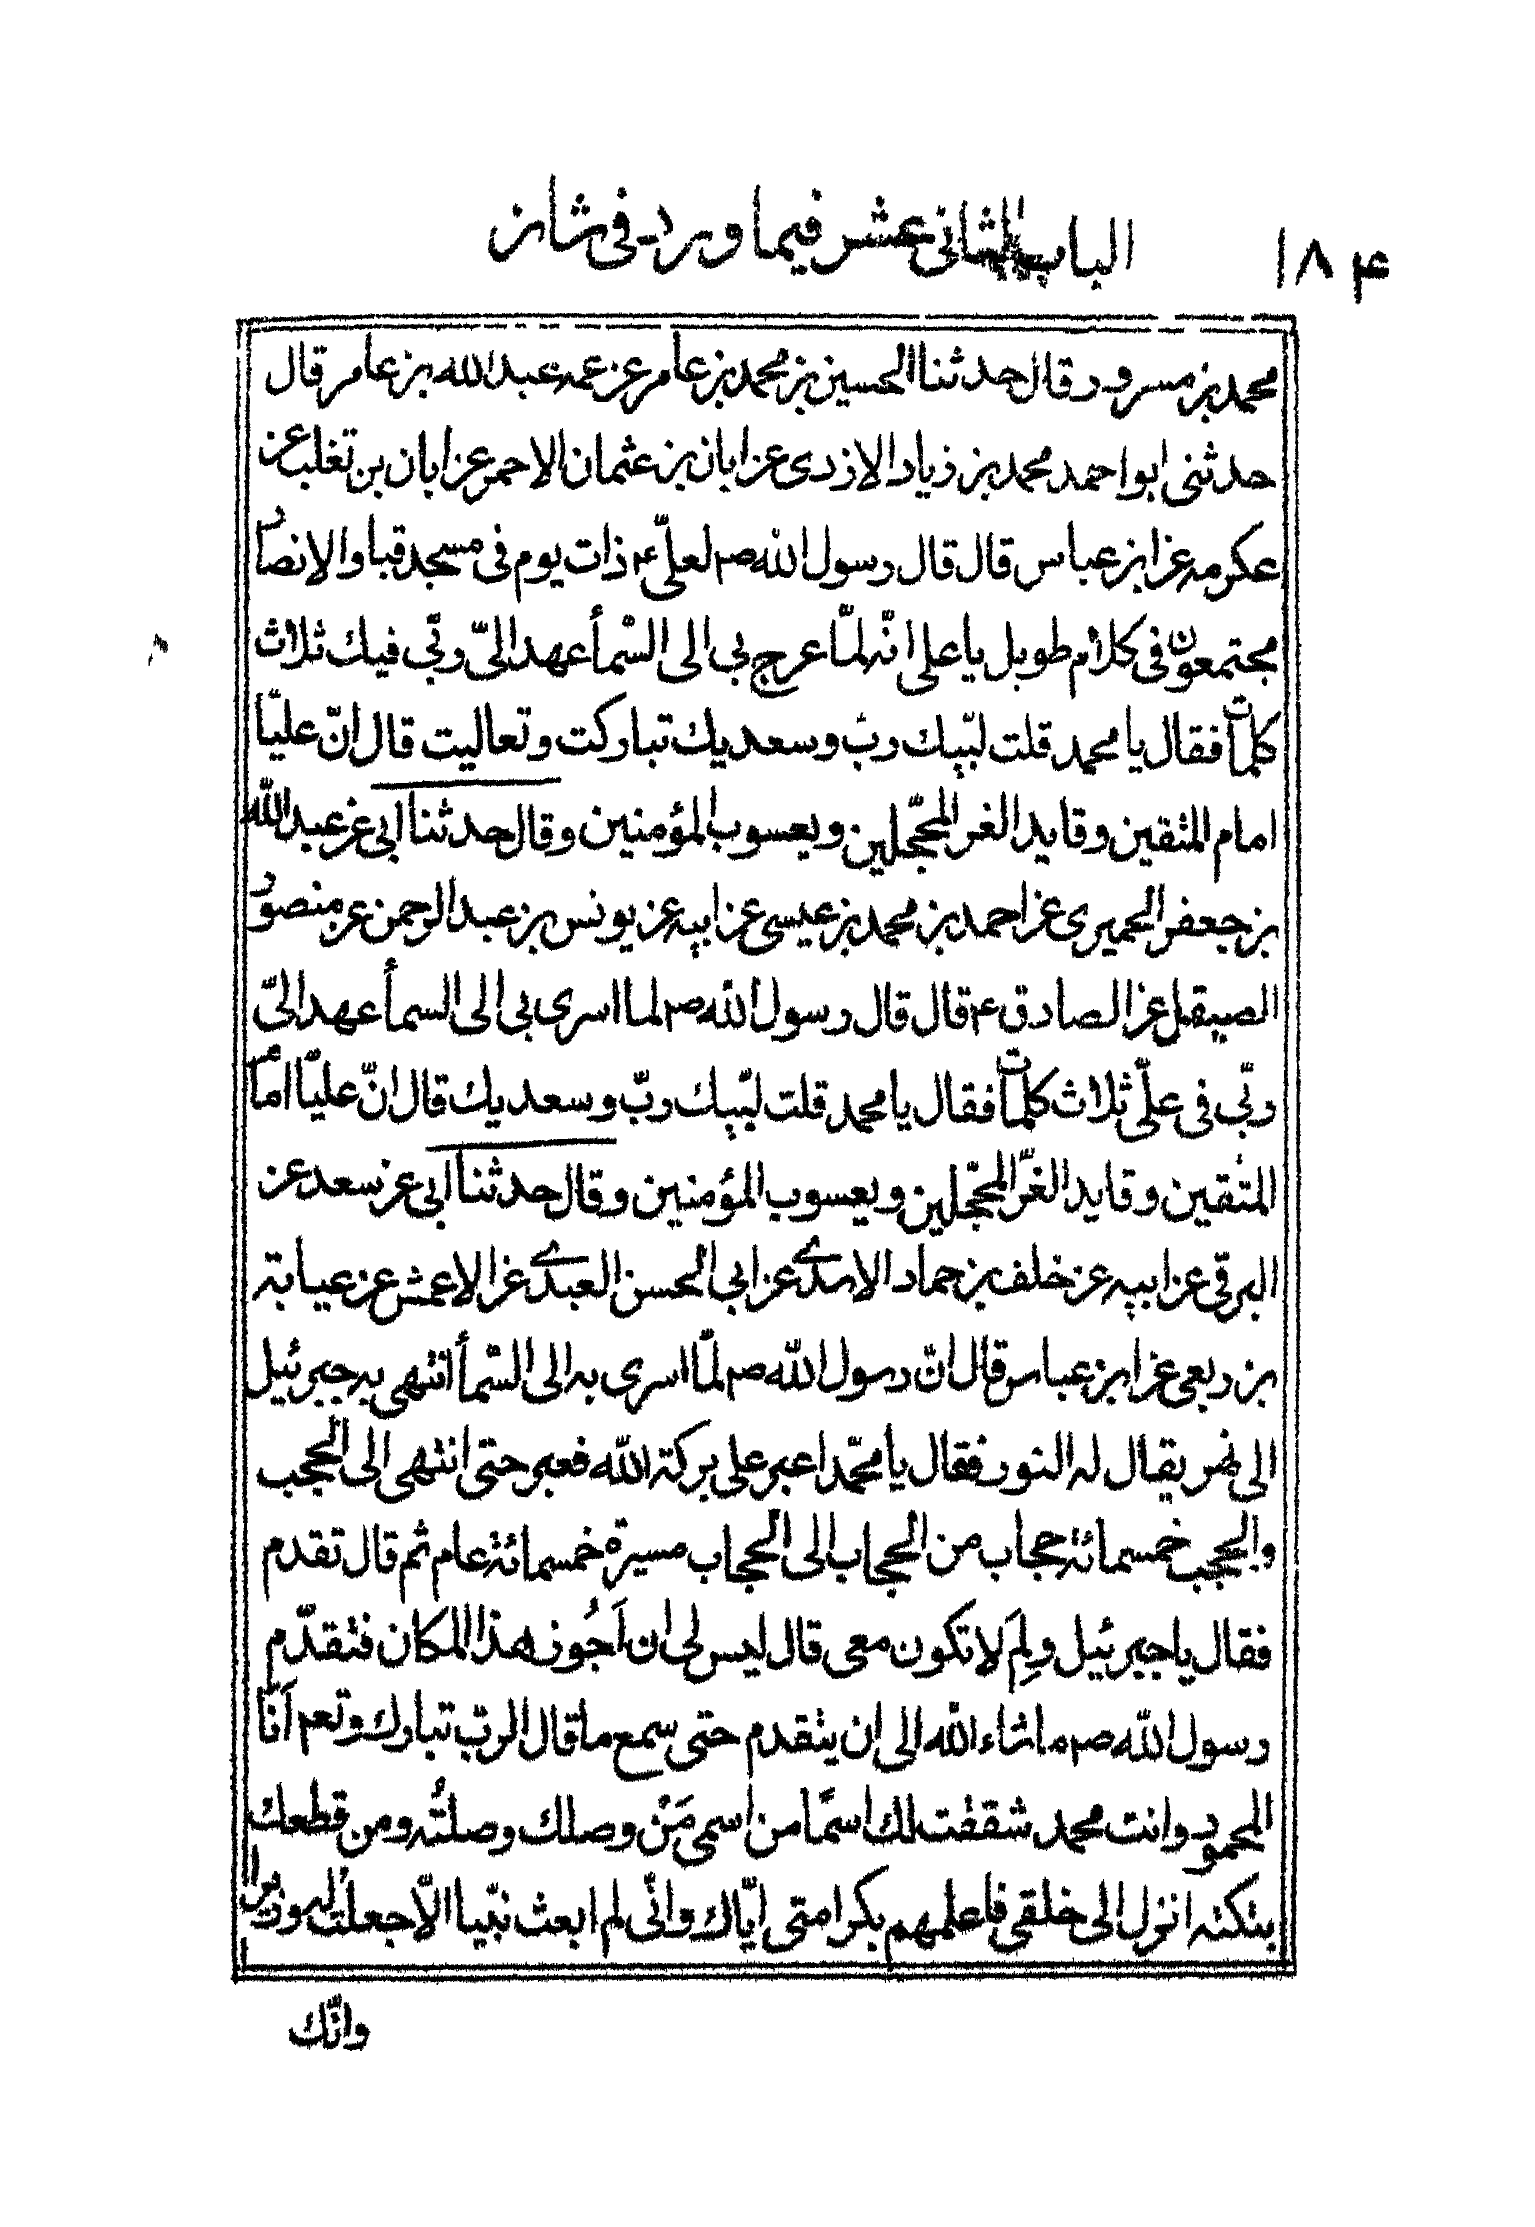 ١٨۴
الباب الثانى عشر فيما ورد فى شان
محمد بن مسرور قال حدثنا الحسين بن محمد بن عامر عن عمه عبد الله بن عامر قال
حدثنى ابو احمد محمد بن زياد الازدى عن ابان بن عثمان الاحمر عن ابان بن تغلب عن
عكرمه عن ابن عباس قال قال رسول الله ص لعلىّ ع ذات يوم فى مسجد قبا والانصار
مجتمعون فى كلام طويل يا على انّه لمّا عرج بى الى السّمأ عهد الىّ ربّى فيك ثلاث
كلمات فقال يا محمد قلت لبّيك ربّ وسعديك تباركت وتعاليت قال انّ عليّا
امام المتقين وقايد الغر المحجّلين ويعسوب المؤمنين وقال حدثنا ابى عن عبد الله
بن جعفر الحميرى عن احمد بن محمد بن عيسى عن ابيه عن يونس بن عبد الرحمن عن منصور
الصيقل عن الصادق ع قال قال رسول الله ص لما اسرى بى الى السمأ عهد الىّ
ربّى فى علىّ ثلاث كلمات فقال يا محمد قلت لبّيك ربّ وسعديك قال انّ عليّا امام
المتقين وقايد الغرّ المحجّلين ويعسوب المؤمنين وقال حدثنا ابى عن سعد عن
البرقى عن ابيه عن خلف بن حماد الاسدى عن ابى الحسن العبدى عن الاعمش عن عباية
بن ربعى عن ابن عباس قال انّ رسول الله ص لمّا اسرى به الى السّمأ انتهى به جبرئيل
الى نهر يقال له النور فقال يا محمّد اعبر على بركة الله فعبر حتى انتهى الى الحجب
والحجب خمسمائة حجاب من الحجاب الى الحجاب مسيرة خمسمائة عام ثم قال تقدم
فقال يا جبرئيل ولِمَ لا تكون معى قال ليس لى ان اَجُوز هذا المكان فتقدّم
رسول الله ص ما شاء الله الى ان يتقدم حتى سمع ما قال الربّ تبارك وتعم اَنَا
المحمود وانت محمد شققت لك اسمًا من اسمى مَنْ وصلك وصلتُه ومن قطعك
بتكته انزل الى خلقى فاعلمهم بكرامتى ايّاك وانّى لم ابعث نبّيا الّا جعلت له وزيرا
وانّك